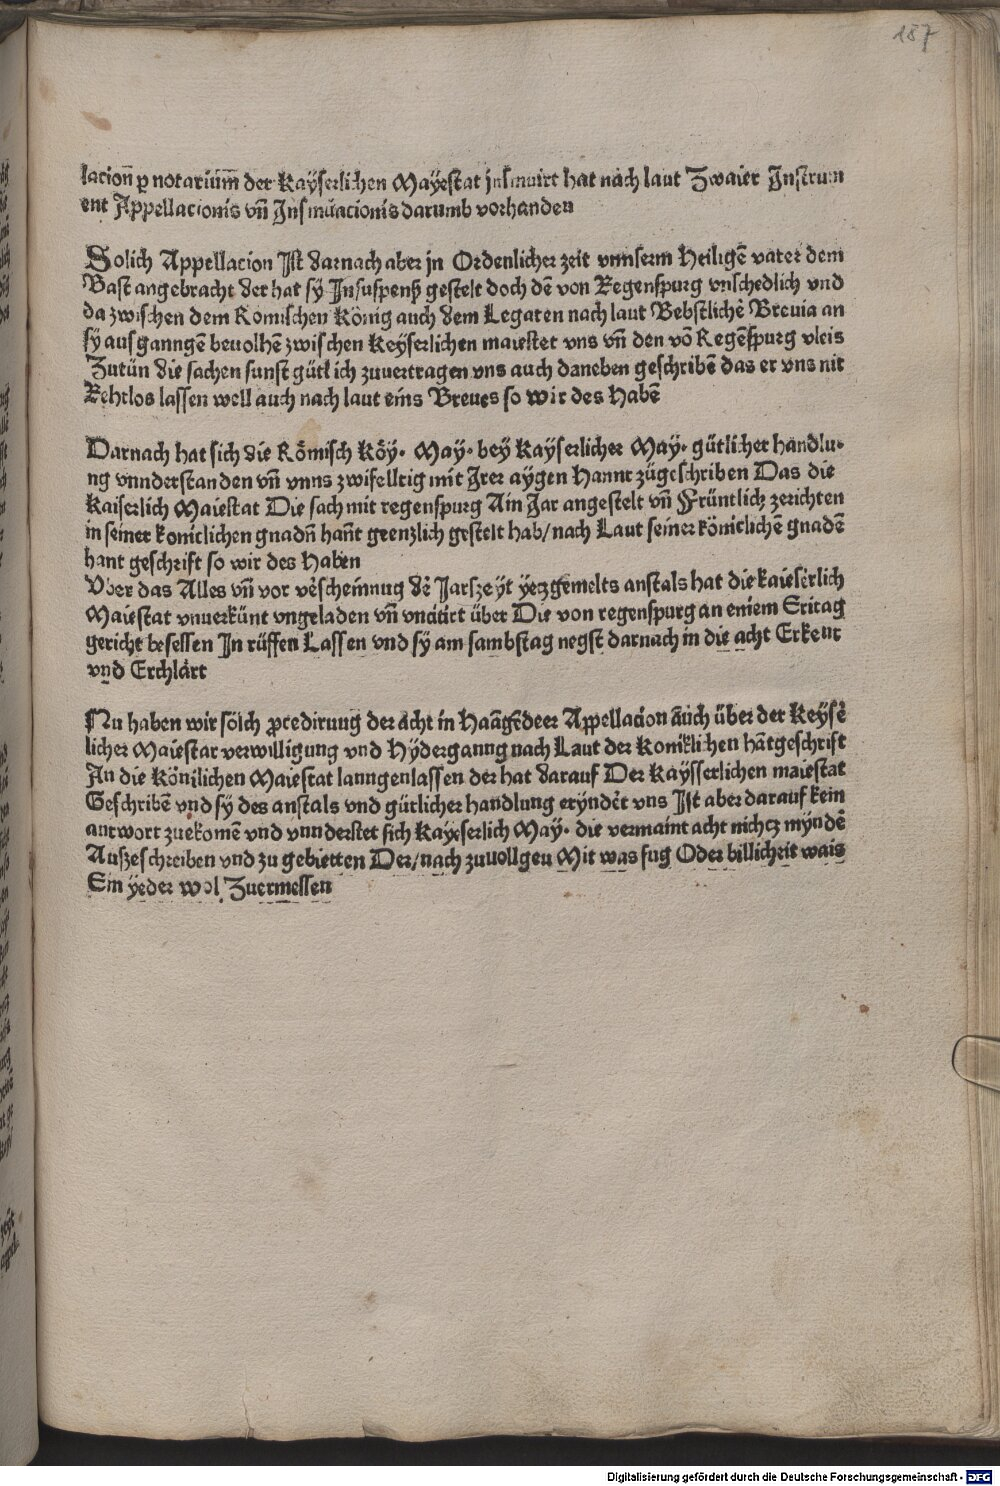 187
lacion̄ ꝑ notariūm̄ der Kaÿserlichen Maÿestat jnsinuirt hat nach laut Zwaier Instrum
ent Appellacionis vn̄ Insinuacionis darumb vorhanden
Solich Appellacion Ist darnach aber jn Ordenlicher zeit vnnserm Heiligē vater dem
Bast angebracht der hat sÿ Insuspenß gestelt doch dē von Regenspurg vnschedlich vnd
da zwischen dem Romischen König auch dem Legaten nach laut Bebstlichē Breuia an
sÿ ausganngē beuolhē zwischen Keÿserlichen maiestet vns vn̄ den vō Regēspurg vleis
Zutün die sachen sunst gütlich zuuertragen vns auch daneben geschribē das er vns nit
Rehtlos lassen well auch nach laut eins Breues so wir des Habē
Darnach hat sich die Römisch Köÿ. May. bey Kayserlicher May. gütlicher handlu-
ng vnnderstanden vn̄ vnns zwifelltig mit Irer aygen Hannt zügeschriben Das die
Kaiserlich Maiestat Die sach mit regenspurg Ain Jar angestelt vn̄ Früntlich zerichten
in seiner koniclichen gnadn̄ han̄t genzlich gestelt hab/ nach Laut seiner köniclichē gnadē
hant geschrift so wir des Haben
Vber das Alles vn̄ vor vèscheinnug dè Jarszeyt yetzgemelts anstals hat die kaieserlich
Maiestat vnuerkünt vngeladen vn̄ vncitirt über Die von regenspurg an eniem Eritag
gericht besessen In rüffen Lassen vnd sÿ am sambstag negst darnach in die acht Erkent
vnd Erchlärt
Nu haben wir sölch ꝓcedirung der acht in Haāgēdeer Appellacion auch über der Keysè
licher Maiestat verwilligung vnd Hÿderganng nach Laut der Koniklichen hātgeschrift
In die Könilichen Maiestat lanngenlassen der hat darauf Der Kaÿsserlichen maiestat
Geschribē vnd sÿ des anstals vnd gütlicher handlung eryndèt vns Ist aber darauf kein
antwort zuekomē vnd vnnderstet sich Kayeserlich May. die vermaint acht nichcz mÿndē
Auszeschreiben vnd zu gebietten Der/ nach zuuollgeu Mit was fug Oder billicheit wais
Ein ÿeder wol Zuermessen
Digitalisierung gefördert durch die Deutsche Forschungsgemeinschaft - DFG